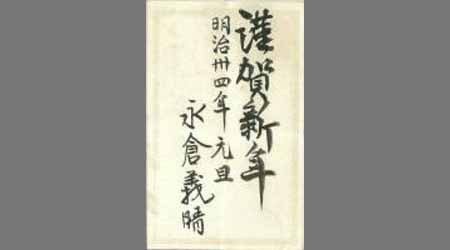 謹賀新年
明治卅四年元旦
永倉義晴